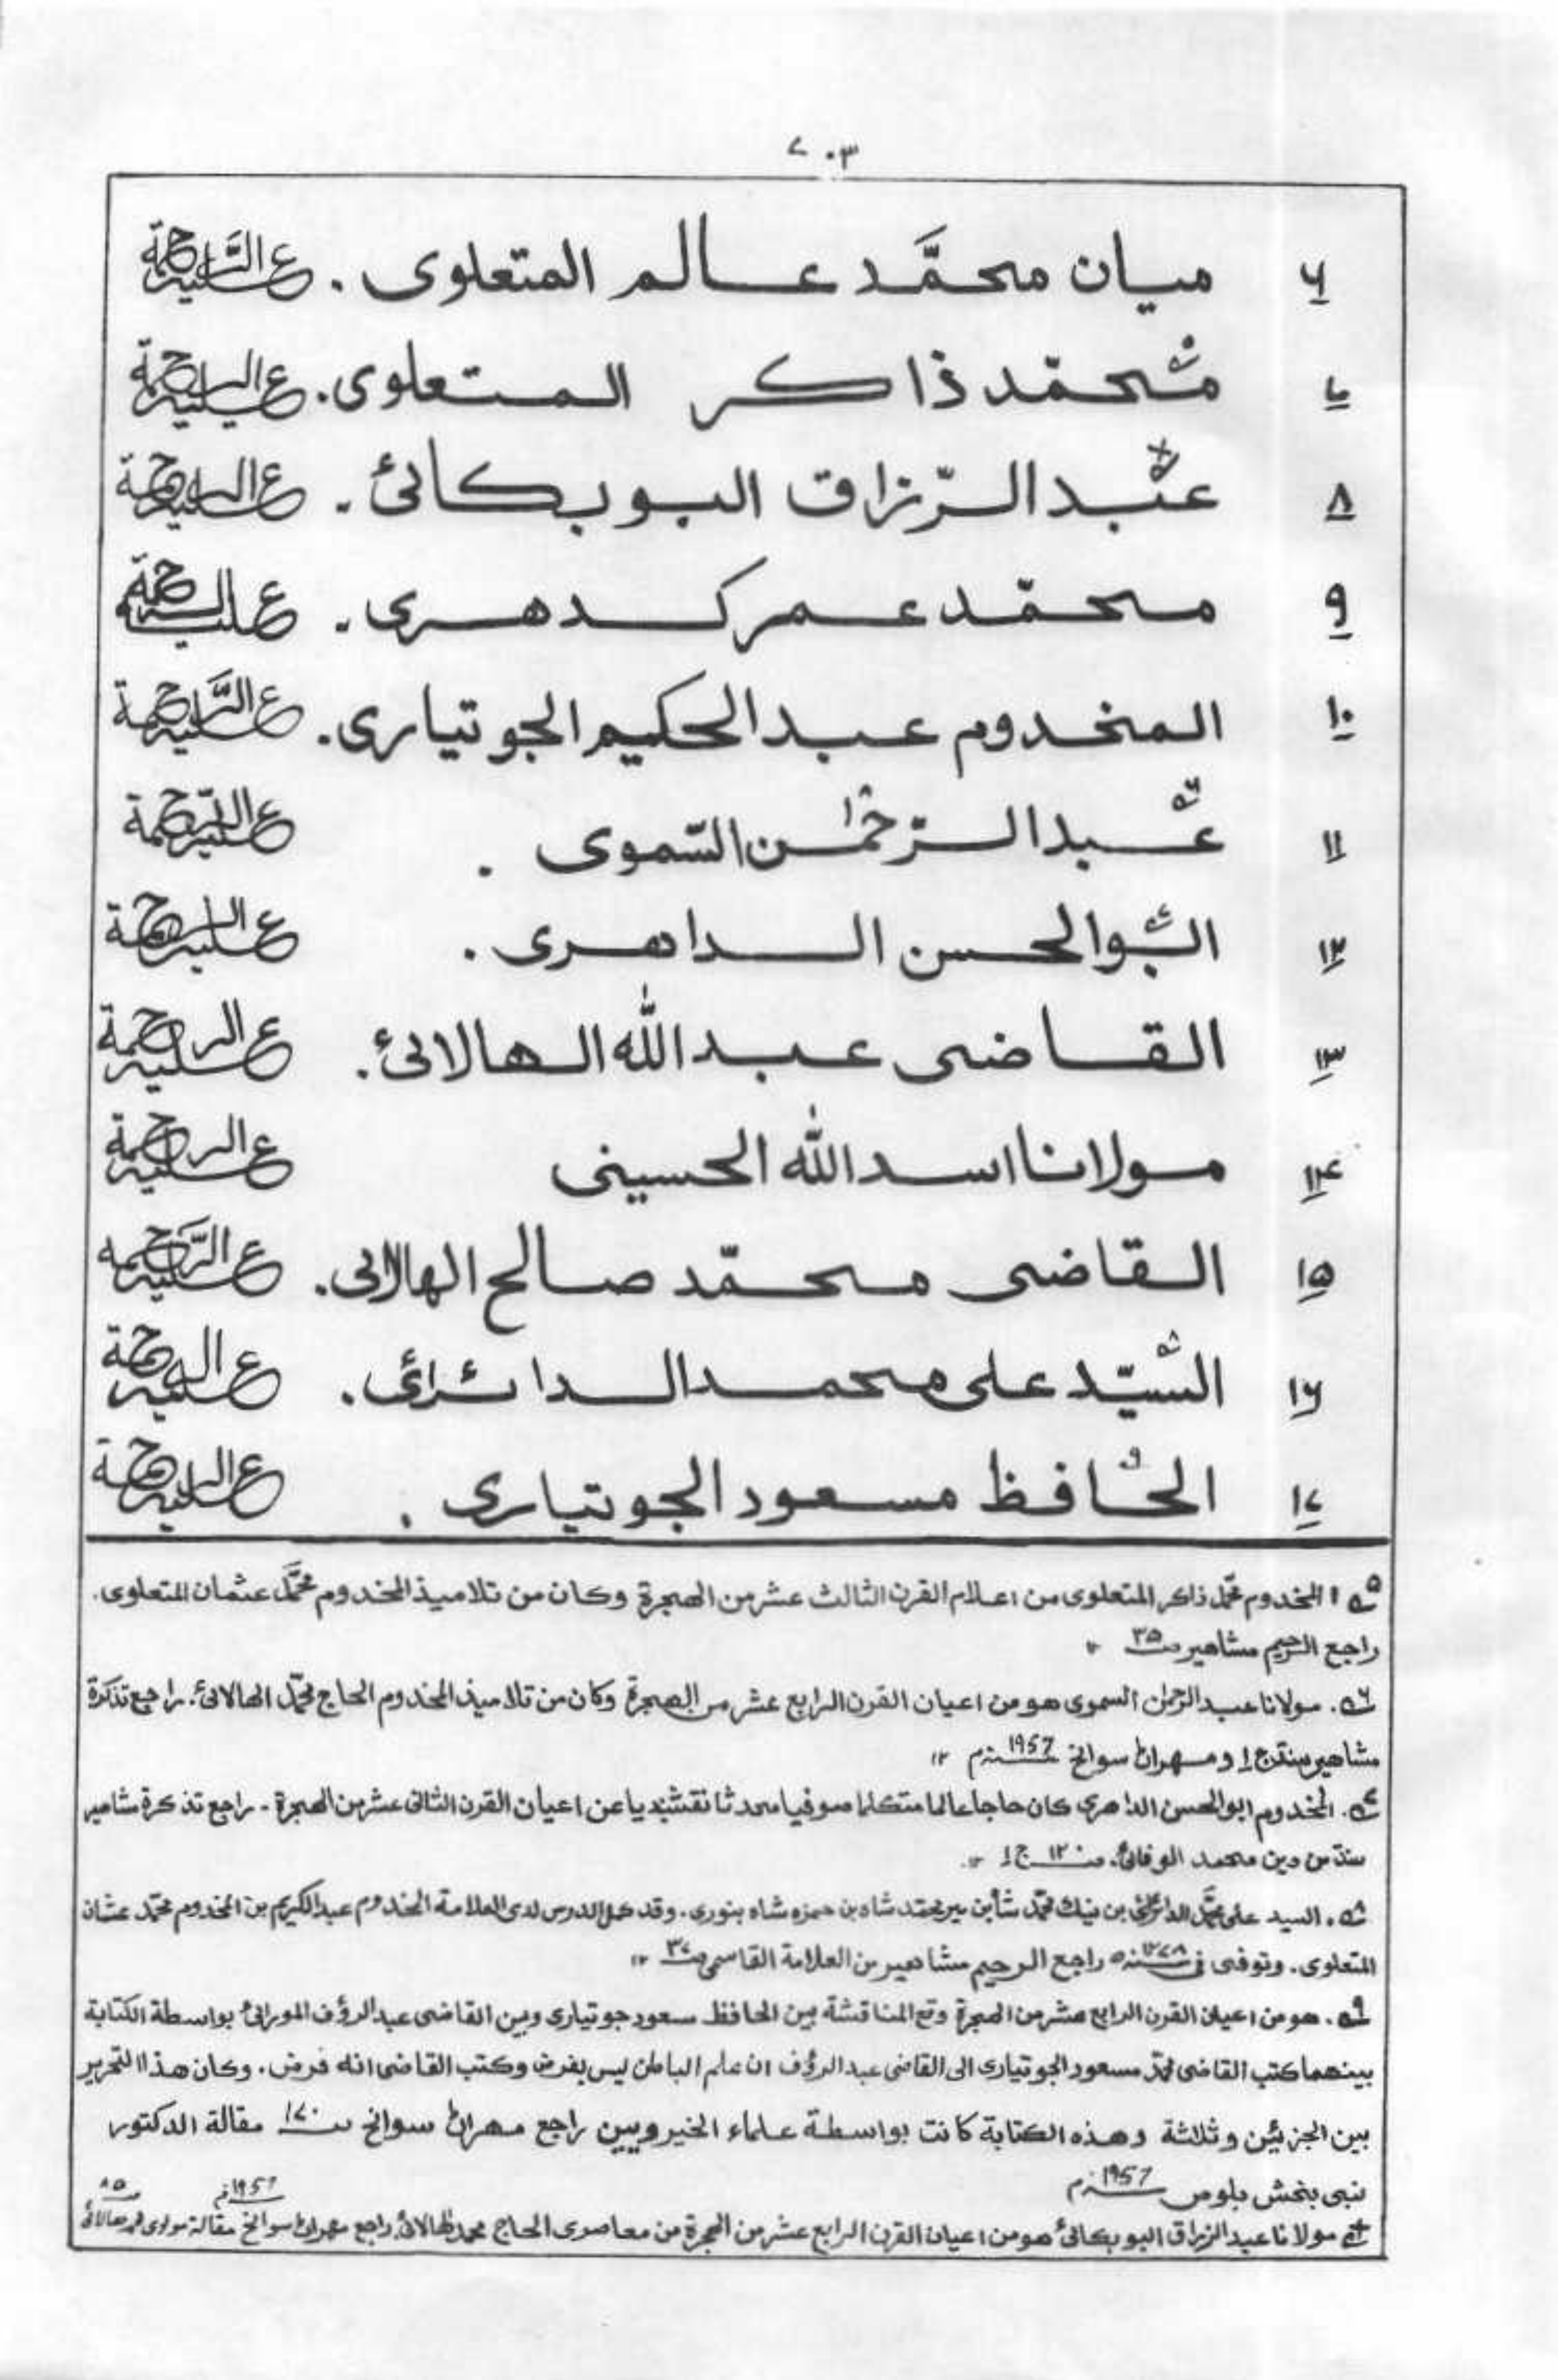 ٧٠٣
٦ ميان محمَّد عالم المتعلوى . عليه الرَّحمة
٧ محمّد ذاكر المتعلوى . عليه الرحمة
٨ عبد الرّزاق البوبكائئ . عليه الرحمة
٩ محمّد عمر كدهرى . عليه الرحمة
١٠ المخدوم عبد الحكيم الجوتيارى . عليه الرَّحمة
١١ عبد الرّحمٰن السّموى . عليه الرّحمة
١٢ ابو الحسن الداهرى . عليه الرحمة
١٣ القاضى عبد اللّٰه الهالائئ . عليه الرحمة
١٤ مولانا اسد اللّٰه الحسينى عليه الرحمة
١٥ القاضى محمّد صالح الهالائى . عليه الرَّحمه
١٦ السيّد على محمد الدائرائى . عليه الرحمة
١٧ الحافظ مسعود الجوتيارى . عليه الرحمة
۵ المخدوم محمّد ذاكر المتعلوى من اعلام القرن الثالث عشر من الهجرة وكان من تلاميذ المخدوم محمَّد عثمان المتعلوى .
راجع الرحيم مشاهير صـ ٣۵ ١٢
٦ . مولانا عبد الرحمٰن السموى هو من اعيان القرن الرابع عشر من الهجرة وكان من تلاميذ المخدوم الحاج محمّد الهالائئ . راجع تذكرة
مشاهير سنده ج ١ ومهران سوانح 1957 م ١٢
٧ . المخدوم ابو الحسن الداهرى كان حاجا عالما متكلما صوفيا محدثا نقشبنديا من اعيان القرن الثانى عشر من الهجرة - راجع تذكرة مشاهير
سنده من دين محمد الوفائئ . صـ ١٢٠ ج ١ ١٢.
٨ . السيد على محمَّد الدائرائى بن نيك محمّد شاه بن مير محمد شاه بن حمزه شاه بنورى . وقد كمل الدرس لدى العلامة المخدوم عبد الكريم بن المخدوم محمّد عثمان
المتعلوى . وتوفى فى ١٢٧٨ سنه ه راجع الرحيم مشاهير من العلامة القاسمى صـ ٣٧ ١٢
٩ . هو من اعيان القرن الرابع عشر من الهجرة وقع المناقشة بين الحافظ مسعود جوتيارى وبين القاضى عبد الرؤف المورائئ بواسطة الكتابة
بينهما كتب القاضى محمّد مسعود الجوتيارى الى القاضى عبد الرؤف ان علم الباطن ليس بفرض وكتب القاضى انه فرض . وكان هذا التحرير
بين الجزئين وثلاثة وهذه الكتابة كانت بواسطة علماء الخير وبين راجع مهران سوانح صـ ١٧٠ مقالة الدكتور
نبى بخش بلوص 1957 م
مولانا عبد الرزاق البوبكائئ هو من اعيان القرن الرابع عشر من الهجرة من معاصرى الحاج محمد الهالائئ راجع مهران سوانح 1957 م مقالة مولوى محمد هالائى صـ ٨۵